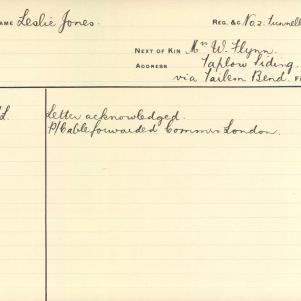 AME Leslie Jones. REG. &C. No. 2. Tunnell
NEXT OF KIN Mrs W. Flynn.
ADDRESS Taplow Siding.
via Tailem Bend.
L. Letter acknowledged.
P/Cable forwarded Commrs London.